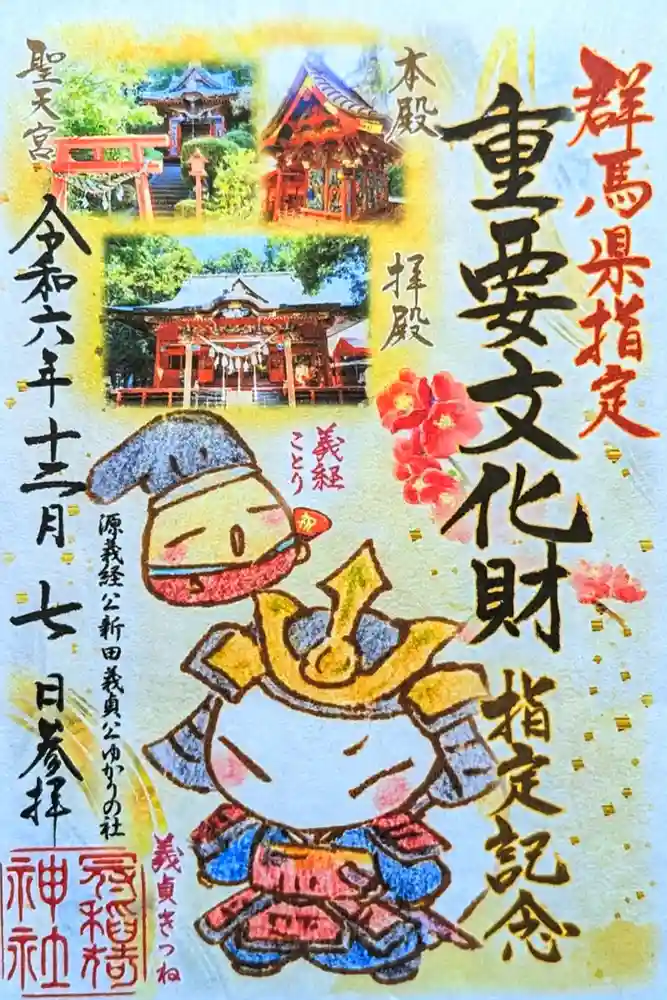 群馬県指定
重要文化財
指定記念
本殿
拝殿
聖天宮
義経
ことり
祝
令和六年十二月七日参拝
源義経公新田義貞公ゆかりの社
義貞きつね
冠稲荷
神社